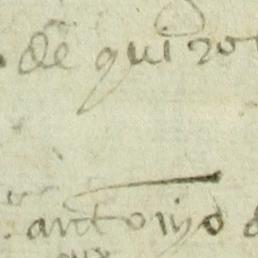 de quiro
antonyo